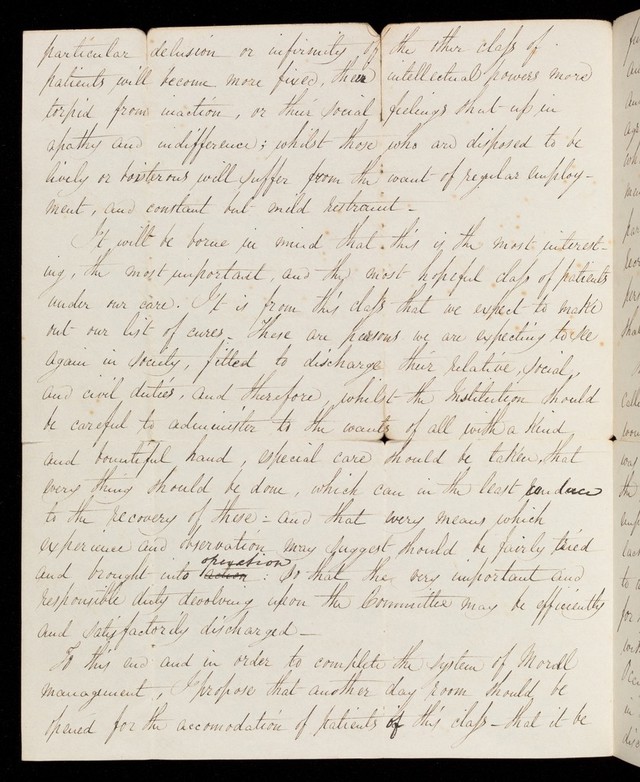 particular delusion or infirmity of the other class of
patients will become more fixed, their intellectual powers more
torpid from inaction, or their social feelings shut up in
apathy and indifference; whilst those who are disposed to be
lively or boisterous will suffer from the want of regular employ-
ment, and constant but mild restraint -
It will be borne in mind that this is the most interest-
ing, the most important, and the most hopeful class of patients
under our care. It is from this class that we expect to make
out our list of cures. These are persons we are expecting to see
again in society, fitted to discharge their relative, social,
and civil duties, and therefore, whilst the Institution should
be careful to administer to the wants of all with a kind
and bountiful hand, especial care should be taken, that
every thing should be done, which can in the least conduce
to the recovery of these:- and that every means which
experience and observation may suggest should be fairly tried
and brought into action operation: so that the very important and
responsible duty devolving upon the Committee may be efficiently
and satisfactorily discharged -
To this end and in order to complete the system of Moral
management, I propose that another day room should be
opened for the accomodation of patients of this class - that it be